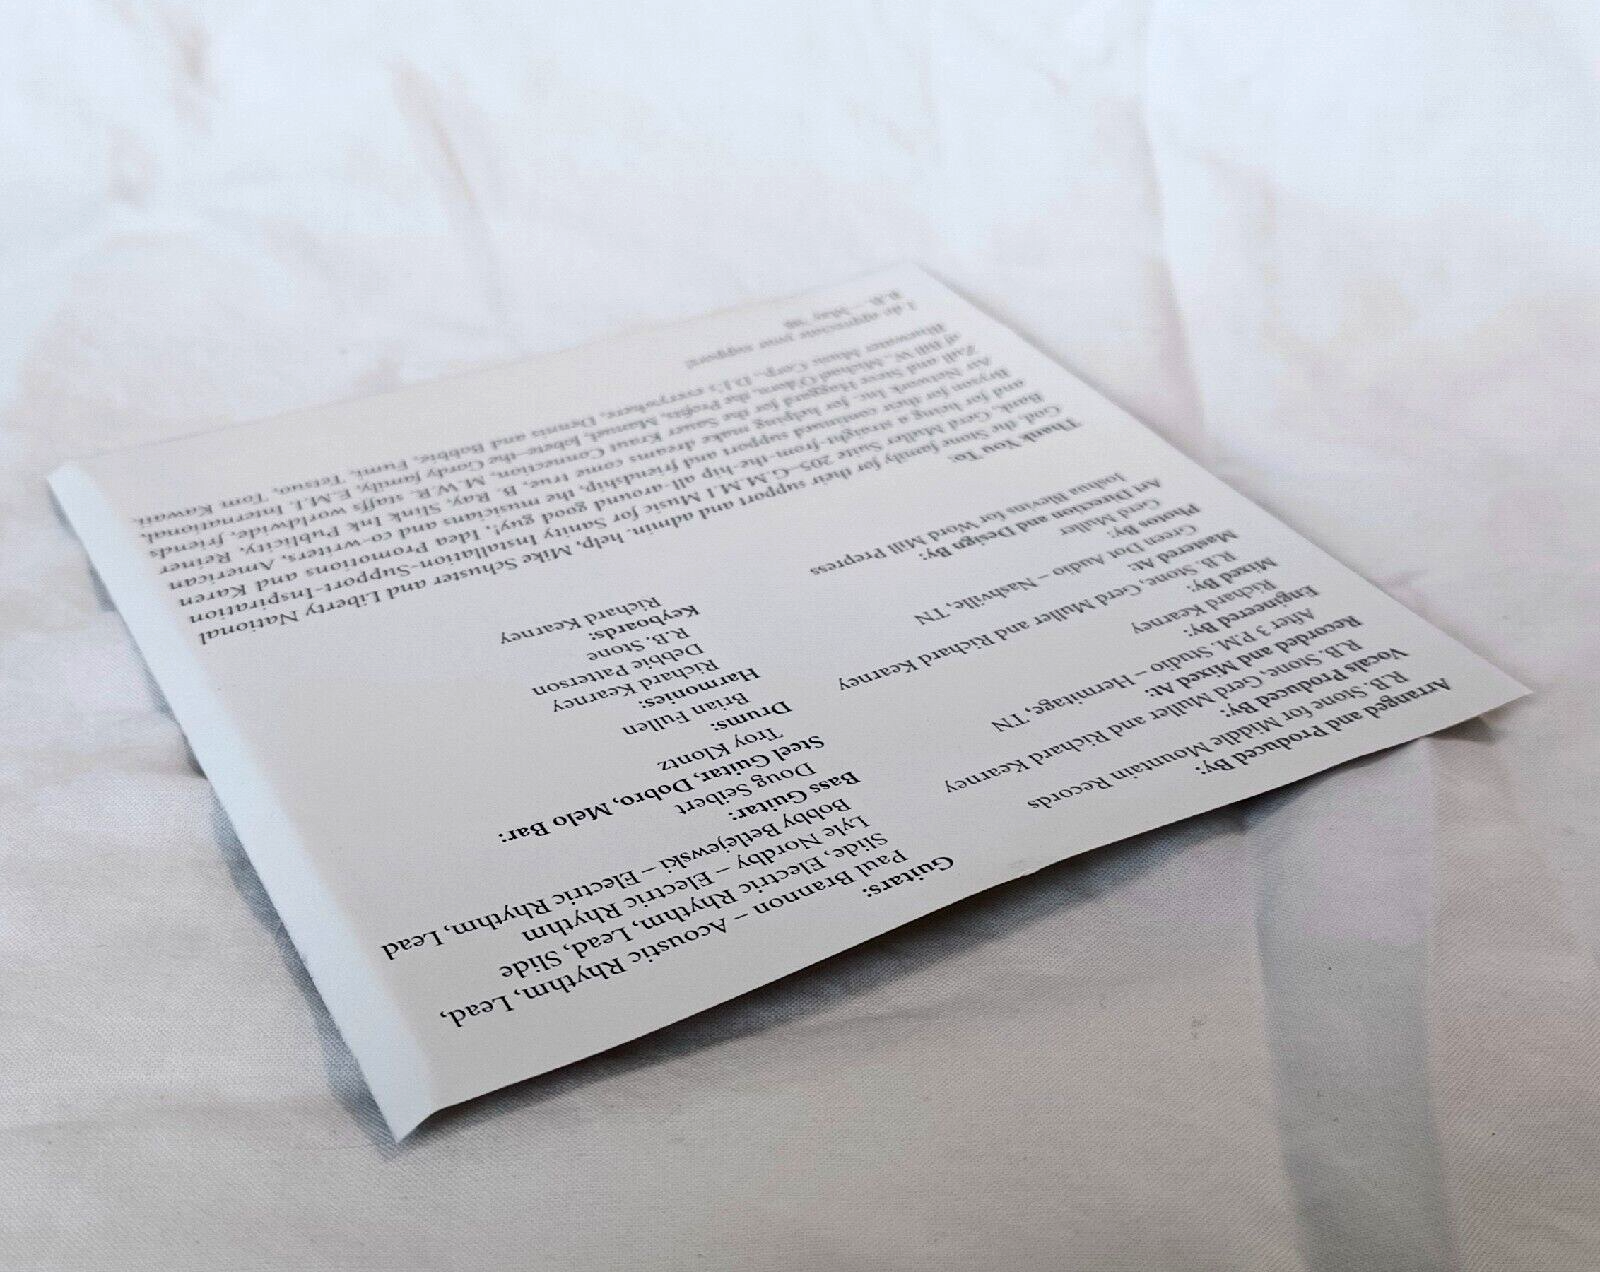 Arranged and Produced By:
R.B. Stone for Middle Mountain Records
Vocals Produced By:
R.B. Stone, Gerd Muller and Richard Kearney
Recorded and Mixed At:
After 3 P.M. Studio – Hermitage, TN
Engineered By:
Richard Kearney
Mixed By:
R.B. Stone, Gerd Muller and Richard Kearney
Mastered At:
Green Dot Audio – Nashville, TN
Photos By:
Gerd Muller
Art Direction and Design By:
Joshua Blevins for Word Mill Prepress
Guitars:
Paul Brannon – Acoustic Rhythm, Lead,
Slide, Electric Rhythm, Lead, Slide
Lyle Nordby – Electric Rhythm
Bobby Betlejewski – Electric Rhythm, Lead
Bass Guitar:
Doug Seibert
Steel Guitar, Dobro, Melo Bar:
Troy Klontz
Drums:
Brian Fullen
Harmonies:
Richard Kearney
Debbie Patterson
R.B. Stone
Keyboards:
Richard Kearney
Thank You To:
God, the Stone family for their support and admin. help, Mike Schuster and Liberty National
Bank, Gerd Muller Suite 205–G.M.M.I Music for Sanity Installation-Support-Inspiration
and for being a straight-from-the-hip all-around good guy!, Idea Promotions and Karen
Bryson for their continued support and friendship, the musicians and co-writers, American
Air Network Inc. for helping make dreams come true, B. Ray, Slink Ink Publicity, Reiner
Zall and Steve Haggard for the Sauer Kraut Connection, M.W.R. staffs worldwide, friends
of Bill W., Michael the Profits, Manuel, Jobete–the Gordy family, E.M.I. International,
Bluewater Music Corp., D.J.'s everywhere, Dennis and Bobbie, Fumi, Tetsuo, Tom Kawaii.
I do appreciate your support!
R.B. – May '98